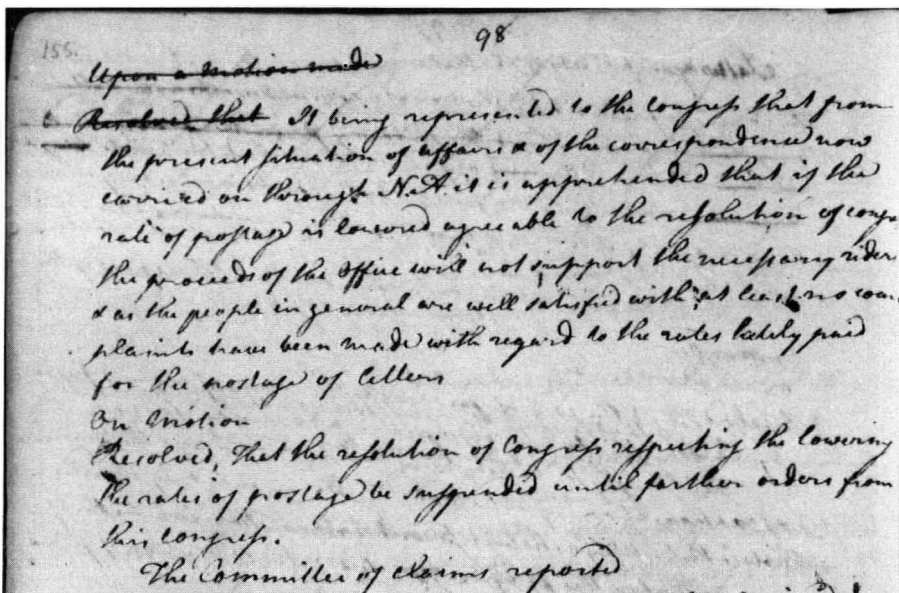 98
155.
Upon a motion made
Resolved that It being represented to the Congress that from
the present situation of affairs & of the correspondence now
carried on through N. A. it is apprehended that if the
rate of postage is lowered agreeable to the resolution of congre
the proceeds of the Office will not support the necessary rider
& as the people in general are well satisfied with, at least no com
plaints have been made with regard to the rates lately paid
for the postage of letters
On motion
Resolved, That the resolution of Congress respecting the lowering
the rates of postage be suspended until farther orders from
this congress.
The Committee of claims reported